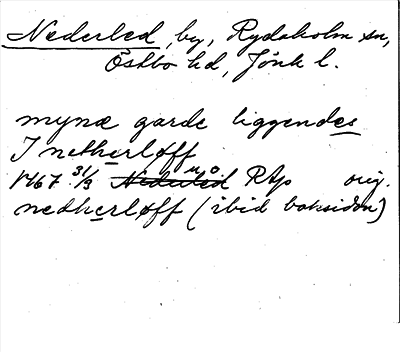 Nederled, by, Rydaholm sn,
Östbo hd, Jönk l.
mynæ garde liggendes
I netherløff
1467 31/3 Nederled u.o. RAp orig.
nedherløff (ibid baksidan)